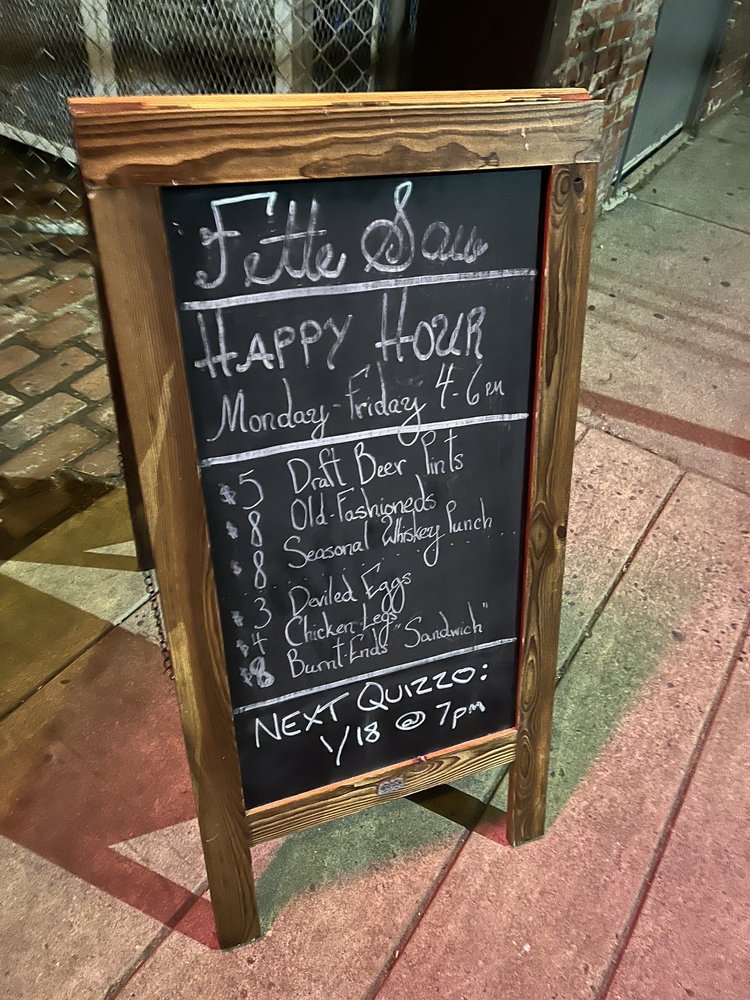 Fette Sau
HAPPY HOUR
Monday-Friday 4-6 PM
$5 Draft Beer Pints
$8 Old-Fashioneds
$8 Seasonal Whiskey Punch
$3 Deviled Eggs
$4 Chicken Legs
$8 Burnt-Ends "Sandwich"
NEXT QUIZZO:
1/18 @ 7pm